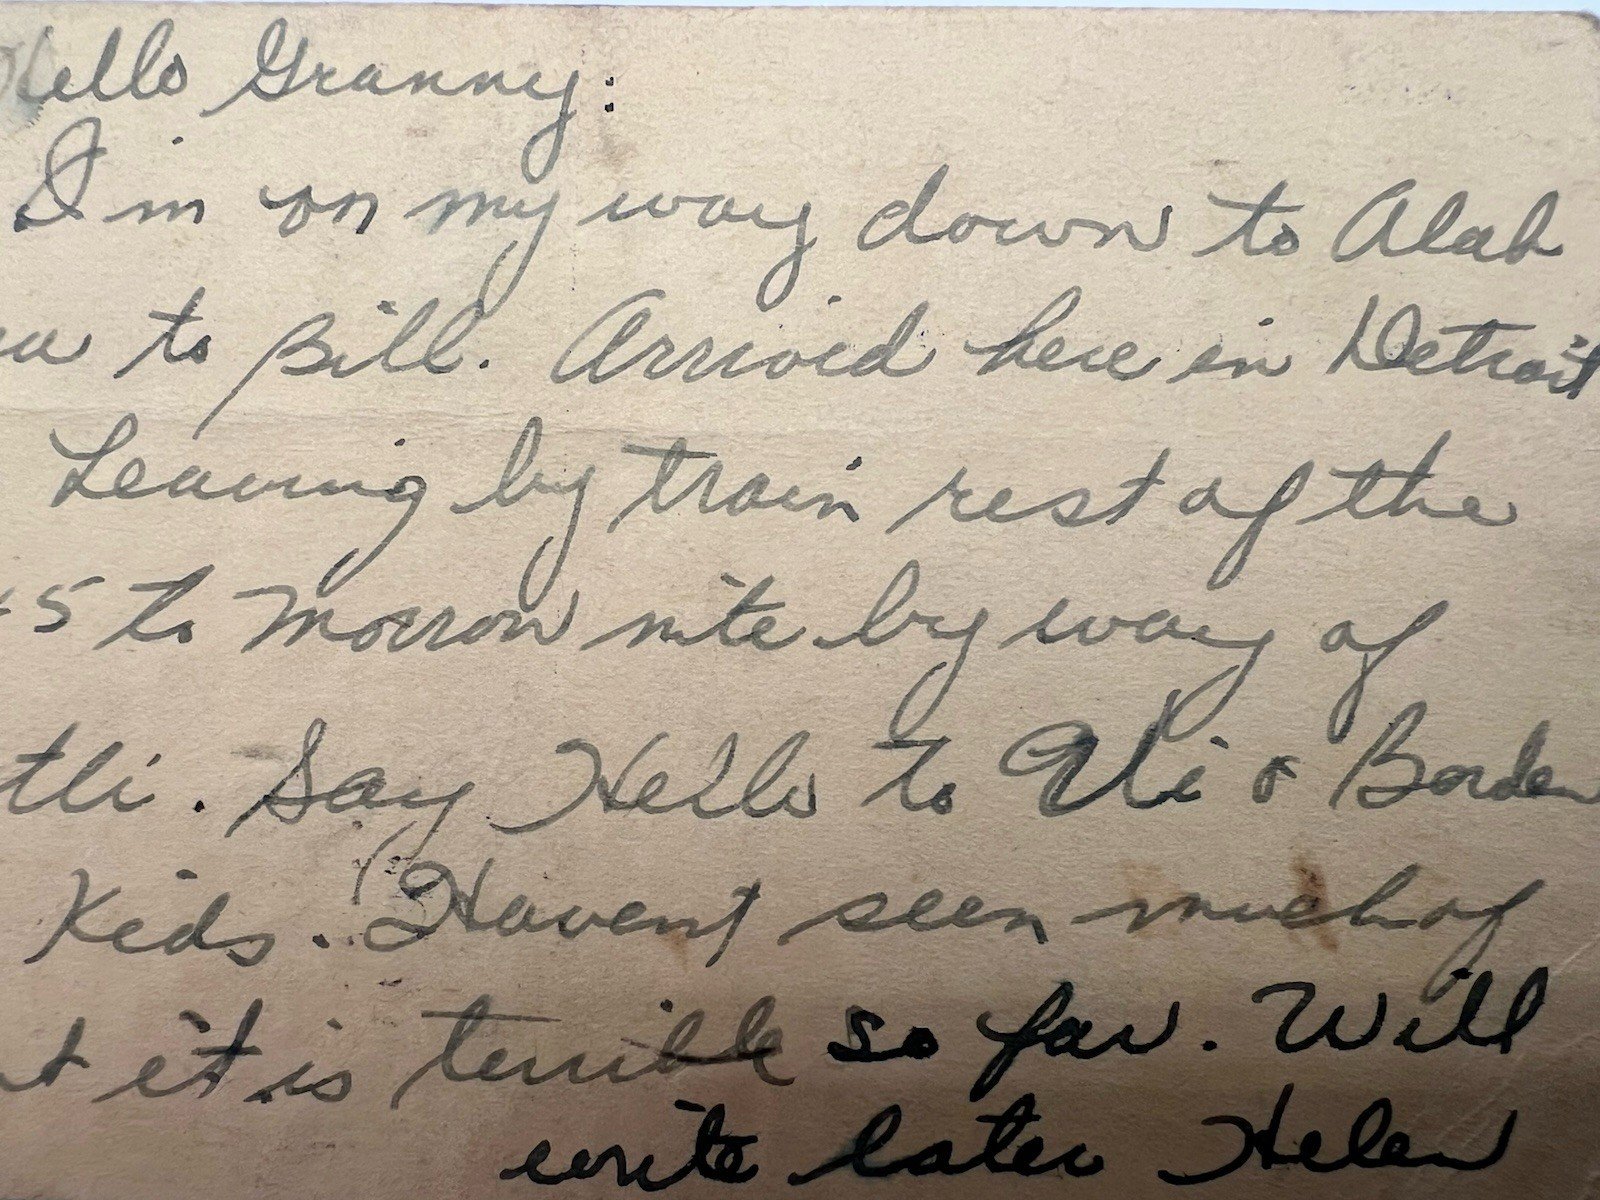 Hello Granny:
I'm on my way down to Alab
to Bill. Arrived here in Detroit
Leaving by train rest of the
5 to morrow nite by way of
Say Hello to Eli & Borden
Kids. Havent seen much of
it is terrible so far. Will
write later Helen